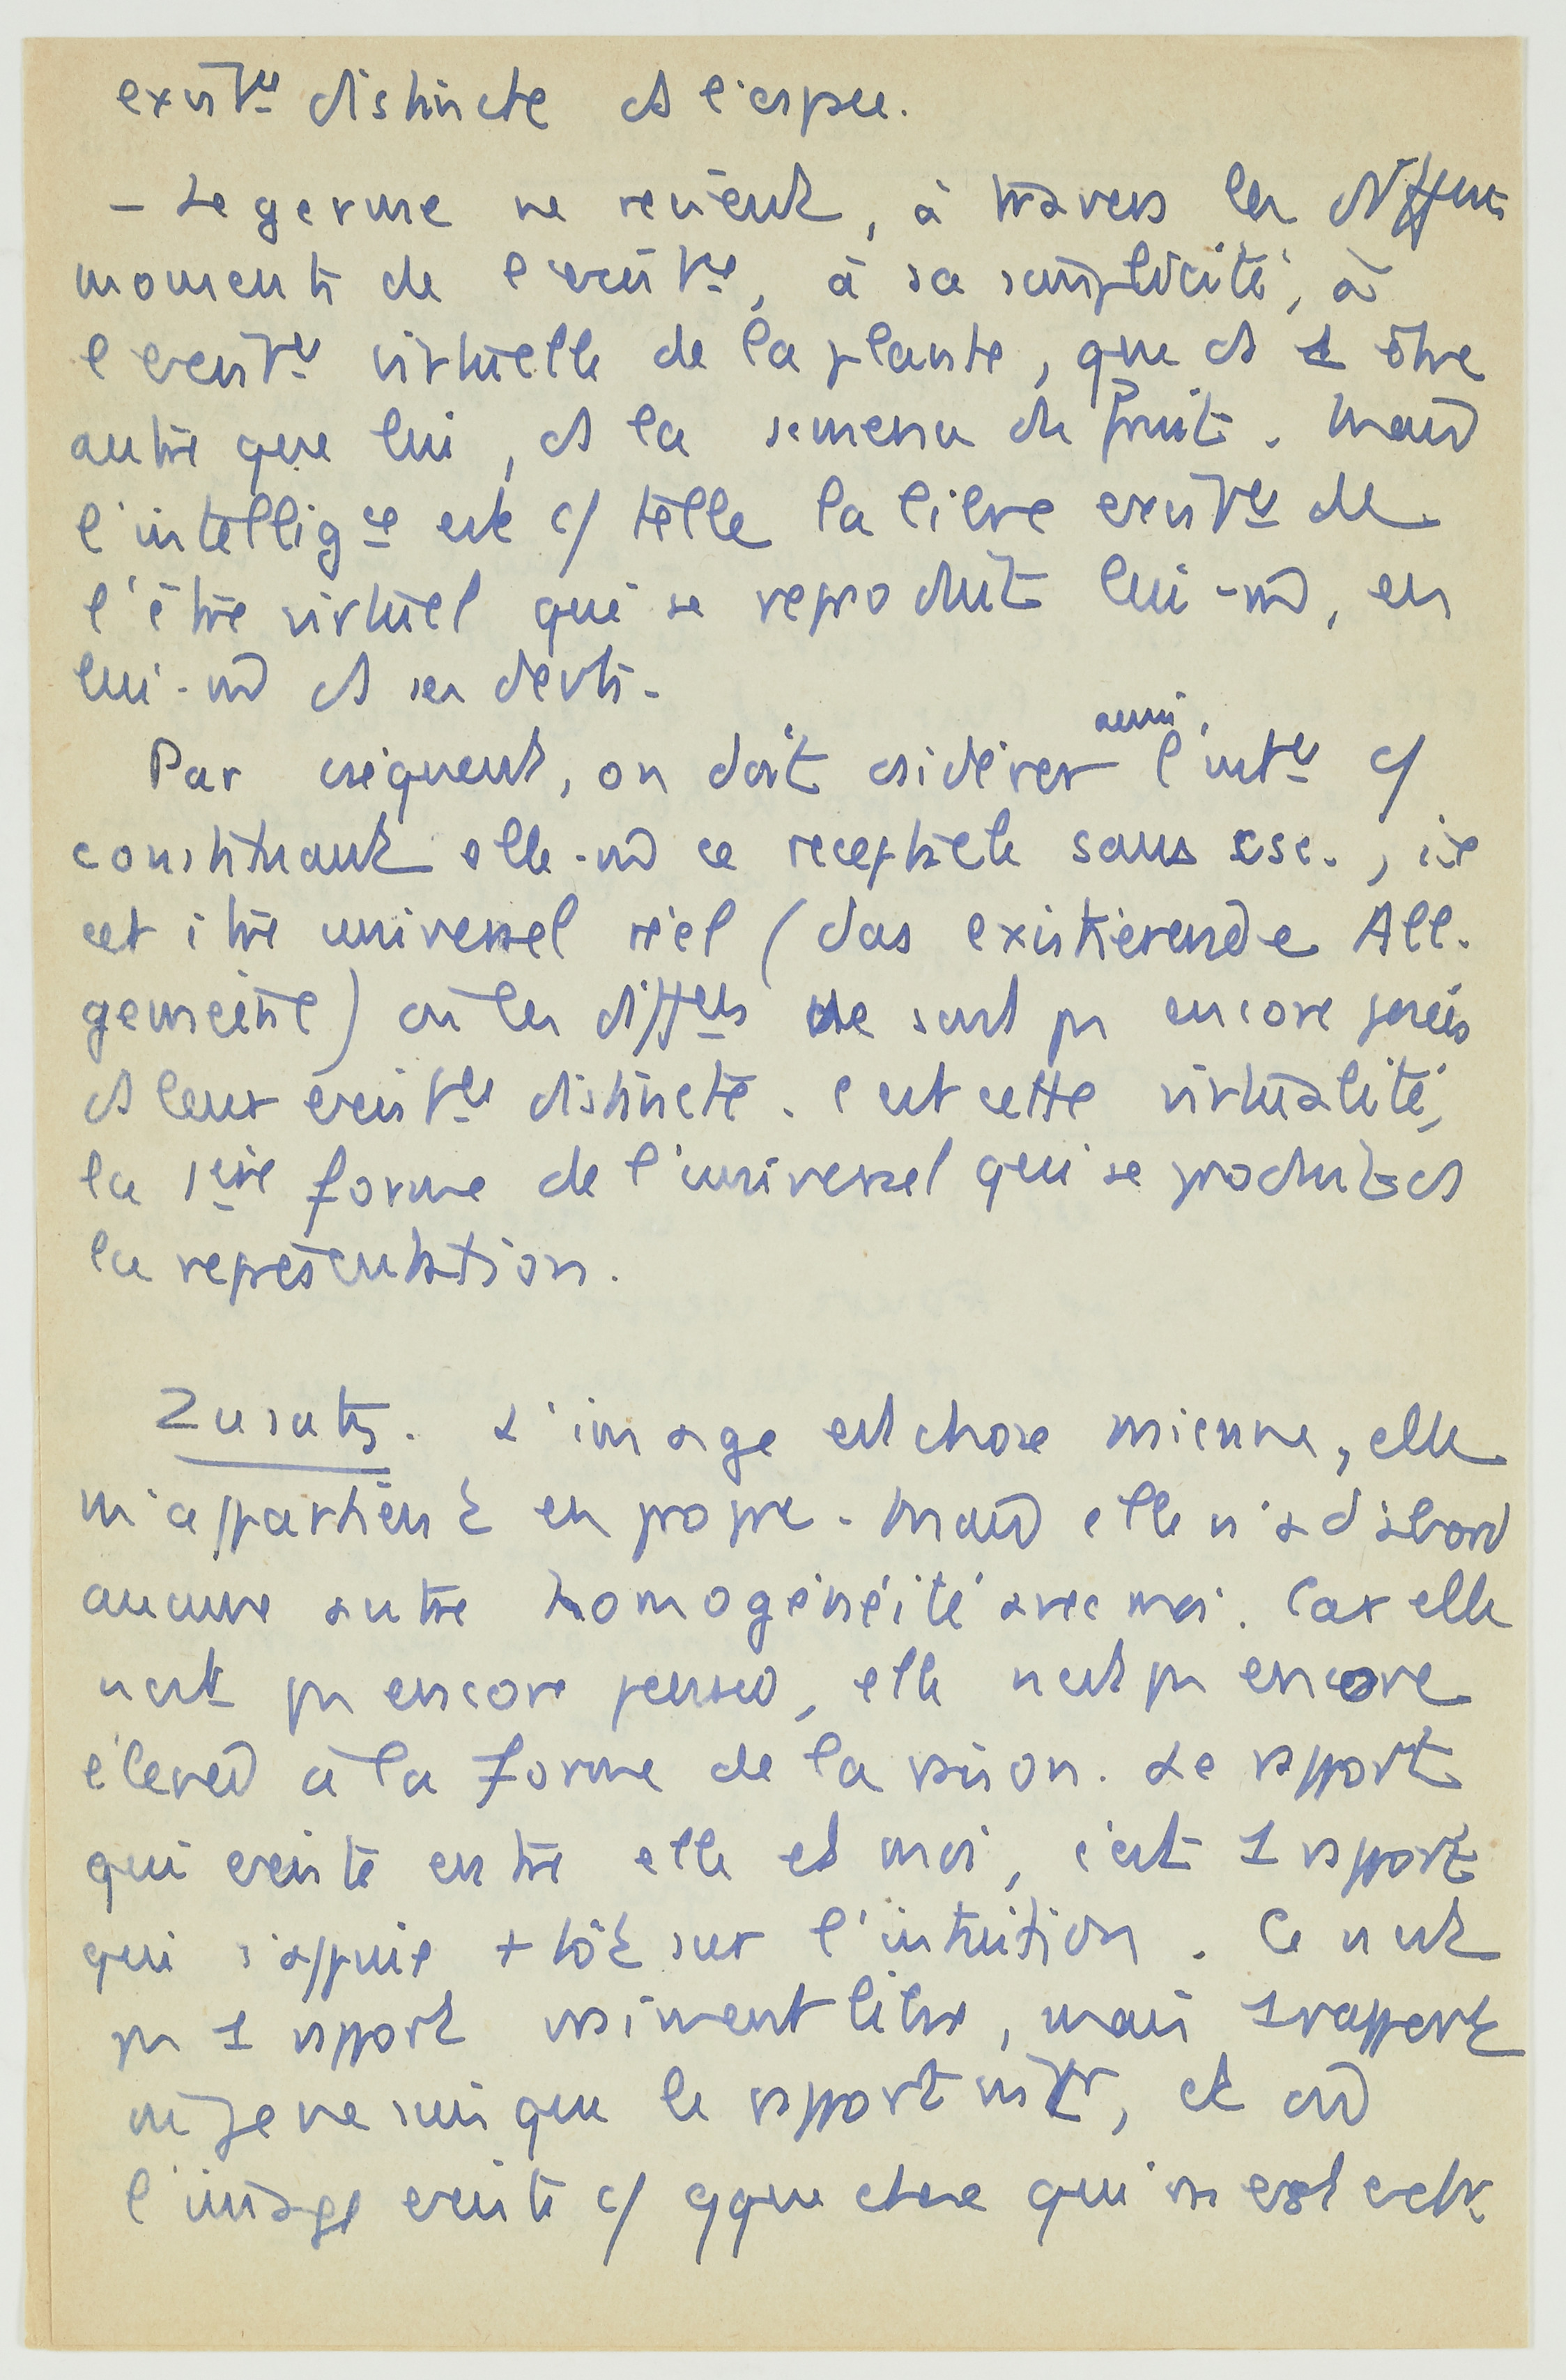 exist<sup>ce</sup> distincte ds l'espace.
- Le germe ne revient, à travers les diffents
moments de l'exist<sup>ce</sup>, à sa simplicité, à
l'exist<sup>ce</sup> virtuelle de la plante, que ds 1 être
autre que lui, ds la semence du fruit. Mais
l'intellig<sup>ce</sup> est c/ telle la libre exist<sup>ce</sup> de
l'être virtuel qui se reproduit lui-m̂, en
lui-m̂ ds ses devts.
Par cséquent, on doit csidérer aussi l'int<sup>ce</sup> c/
constituant elle-m̂ ce réceptacle sans csc., ie
cet être universel réel (das existierende All-
gemeine) où les diff<sup>ces</sup> ne sont pas encore posées
ds leur exist<sup>ce</sup> distincte. C'est cette virtualité,
la 1<sup>ère</sup> forme de l'universel qui se produit ds
la représentation.
Zusatz. L'image est chose mienne, elle
m'appartient en propre. Mais elle n'a d'abord
aucune autre homogénéité avec moi. Car elle
n'est pas encore pensée, elle n'est pas encore
élevée à la forme de la raison. Le rapport
qui existe entre elle et moi, c'est 1 rapport
qui s'appuie +tôt sur l'intuition. Ce n'est
pas 1 rapport vraiment libre, mais 1 rapport
où je ne suis que le rapport intr, et où
l'image existe c/ qque chose qui m'est extr.